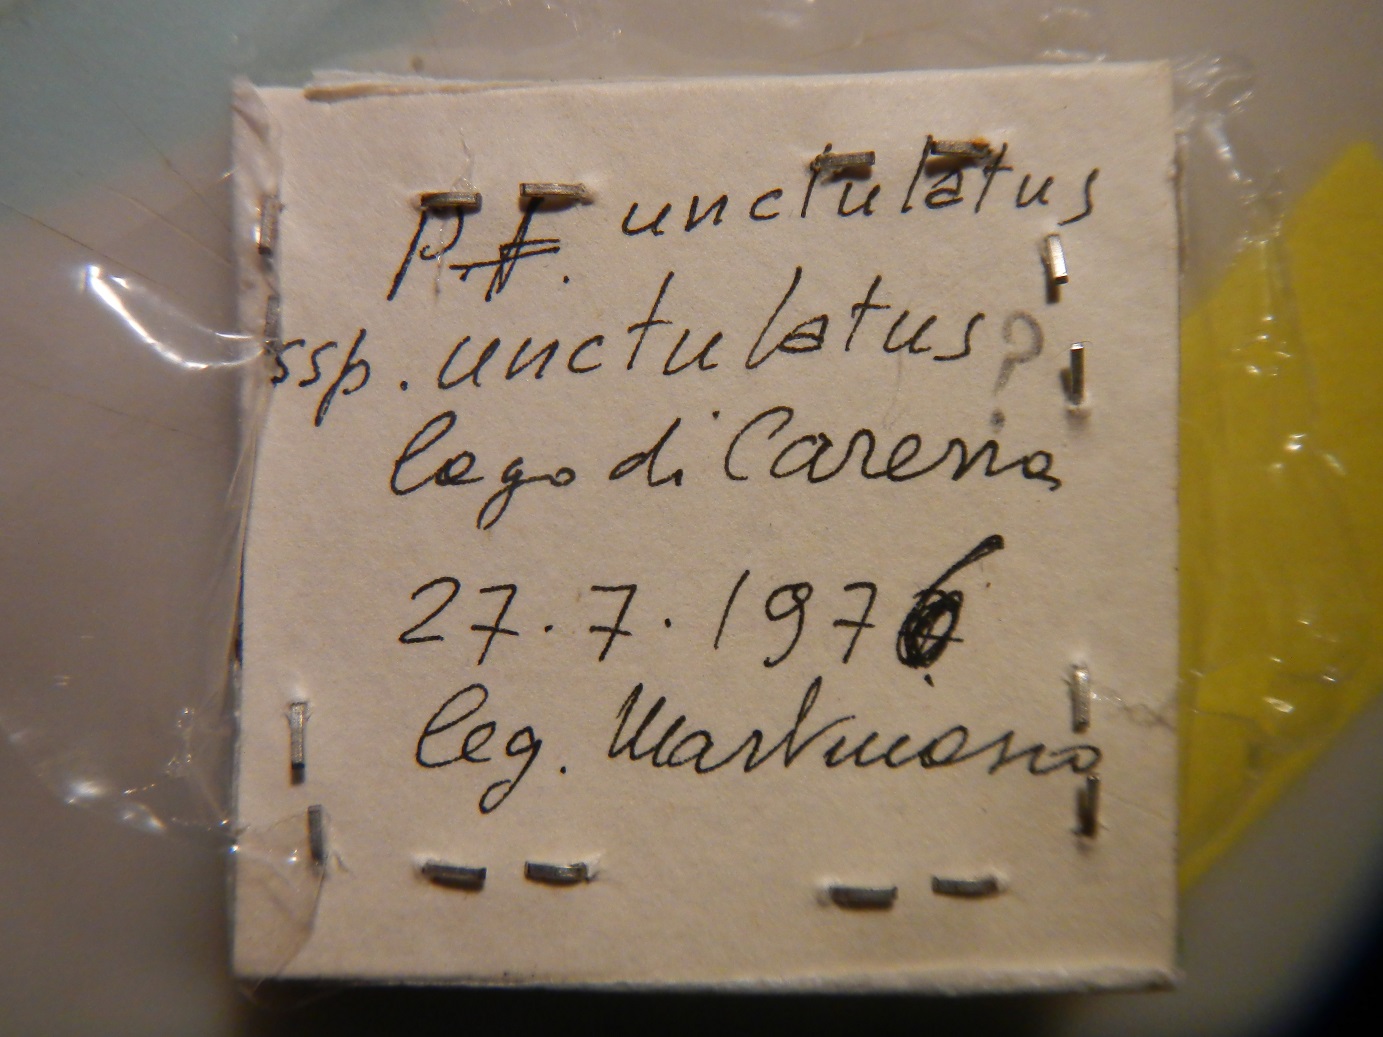 P. unctulatus
ssp. unctulatus ?
lago di Caresna
27.7.1976
leg. Martinasco